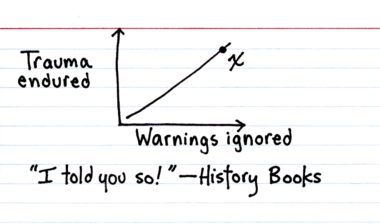 Trauma
endured
x
Warnings ignored
"I told you so!" —History Books